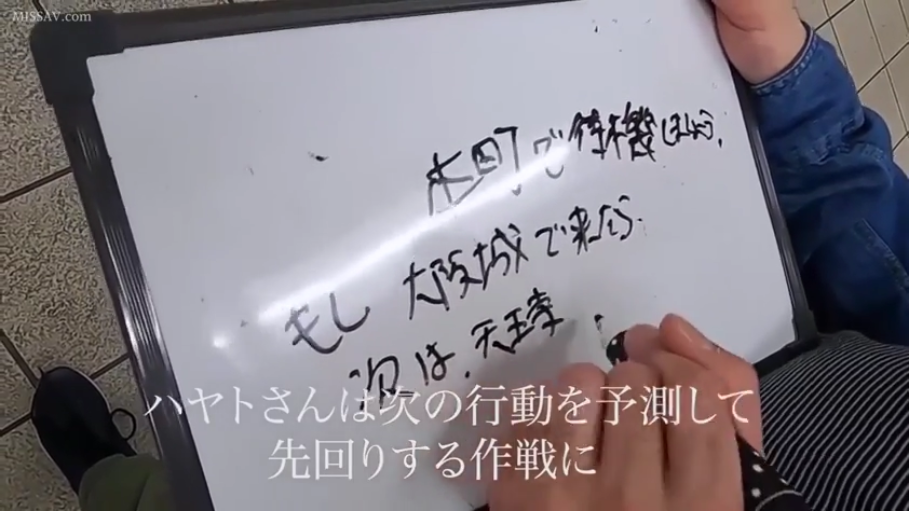 MISSAV.com
本町で待機しましょう。
もし大阪城で来たら
次は、天王寺
ハヤトさんは次の行動を予測して
先回りする作戦に